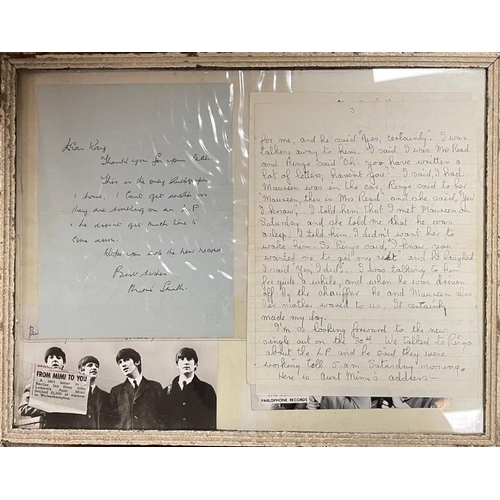 Dear Kay
Thank you for your letter
This is the only autograph
I have. I Cant get another as
they are working on an L.P
& he doesnt get much time to
Come down.
Hope you like the new record
Best wishes
Mimi Smith.
3
for me, and he said "Yes, certainly". I was
talking away to him. I said I was Mo Read
and Ringo said "Oh! you have written a
lot of letters, havent you". I said, I had.
Maureen was in the car. Ringo said to her
"Maureen this is Mo Read" and she said, "Yes
I know". I told him that I met Maureen on
Saturday and she told me that he was
asleep. I told him I didn't want her to
wake him. So Ringo said, "I know, you
wanted me to get my rest" and he laughed.
I said "Yes, I did". I was talking to him
for quite a while, and when he was driven
off by the chauffer he and Maureen also
her mother waved to us. It certainly
made my day.
I'm so looking forward to the new
single out on the 30th. We talked to Ringo
about the L.P. and he said they were
working till 5 am Saturday morning.
Here is Aunt Mimi's address:-
FROM MIMI TO YOU
PARLOPHONE RECORDS